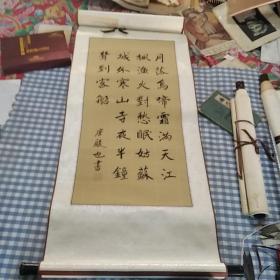 月落烏啼霜滿天江
楓漁火對愁眠姑蘇
城外寒山寺夜半鐘
聲到客船
書